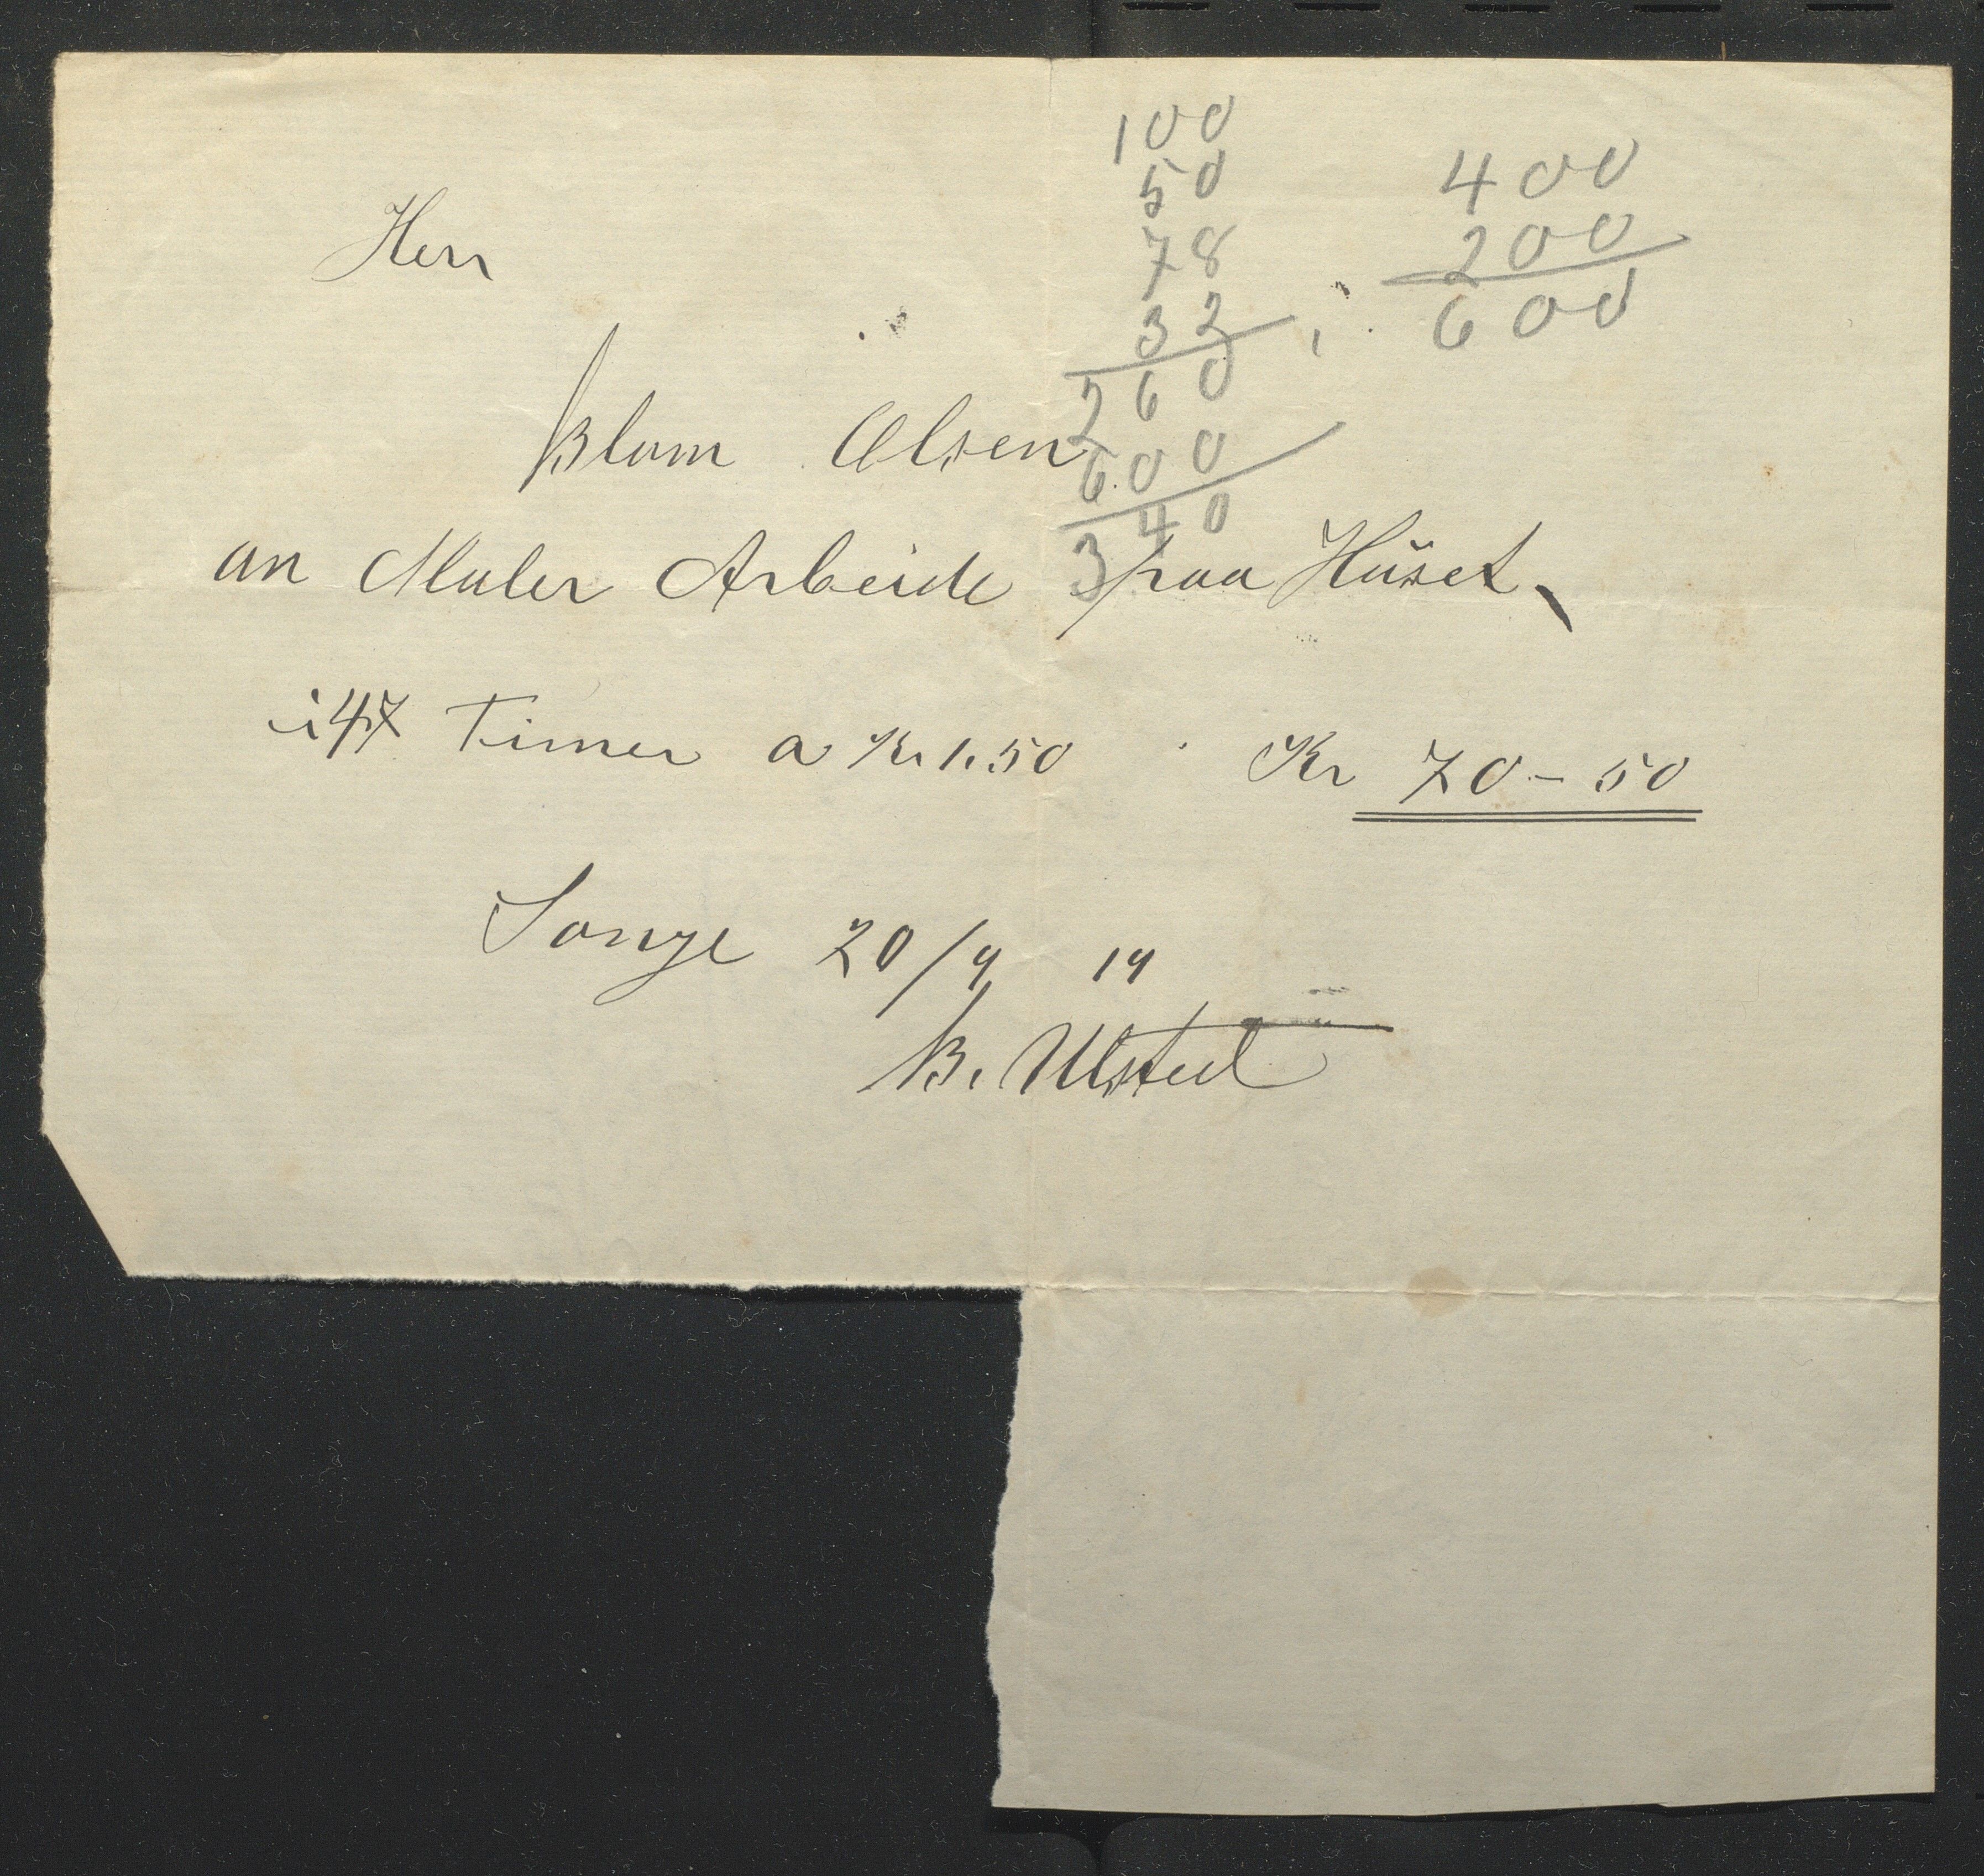 100
50
78
32
260
600
340
400
200
600
Herr
Blom Olsen
an Maler Arbeide paa Huset
i 47 Timer a Kr 1.50 Kr 70-50
Songe 20/9 19
B. Ulsted